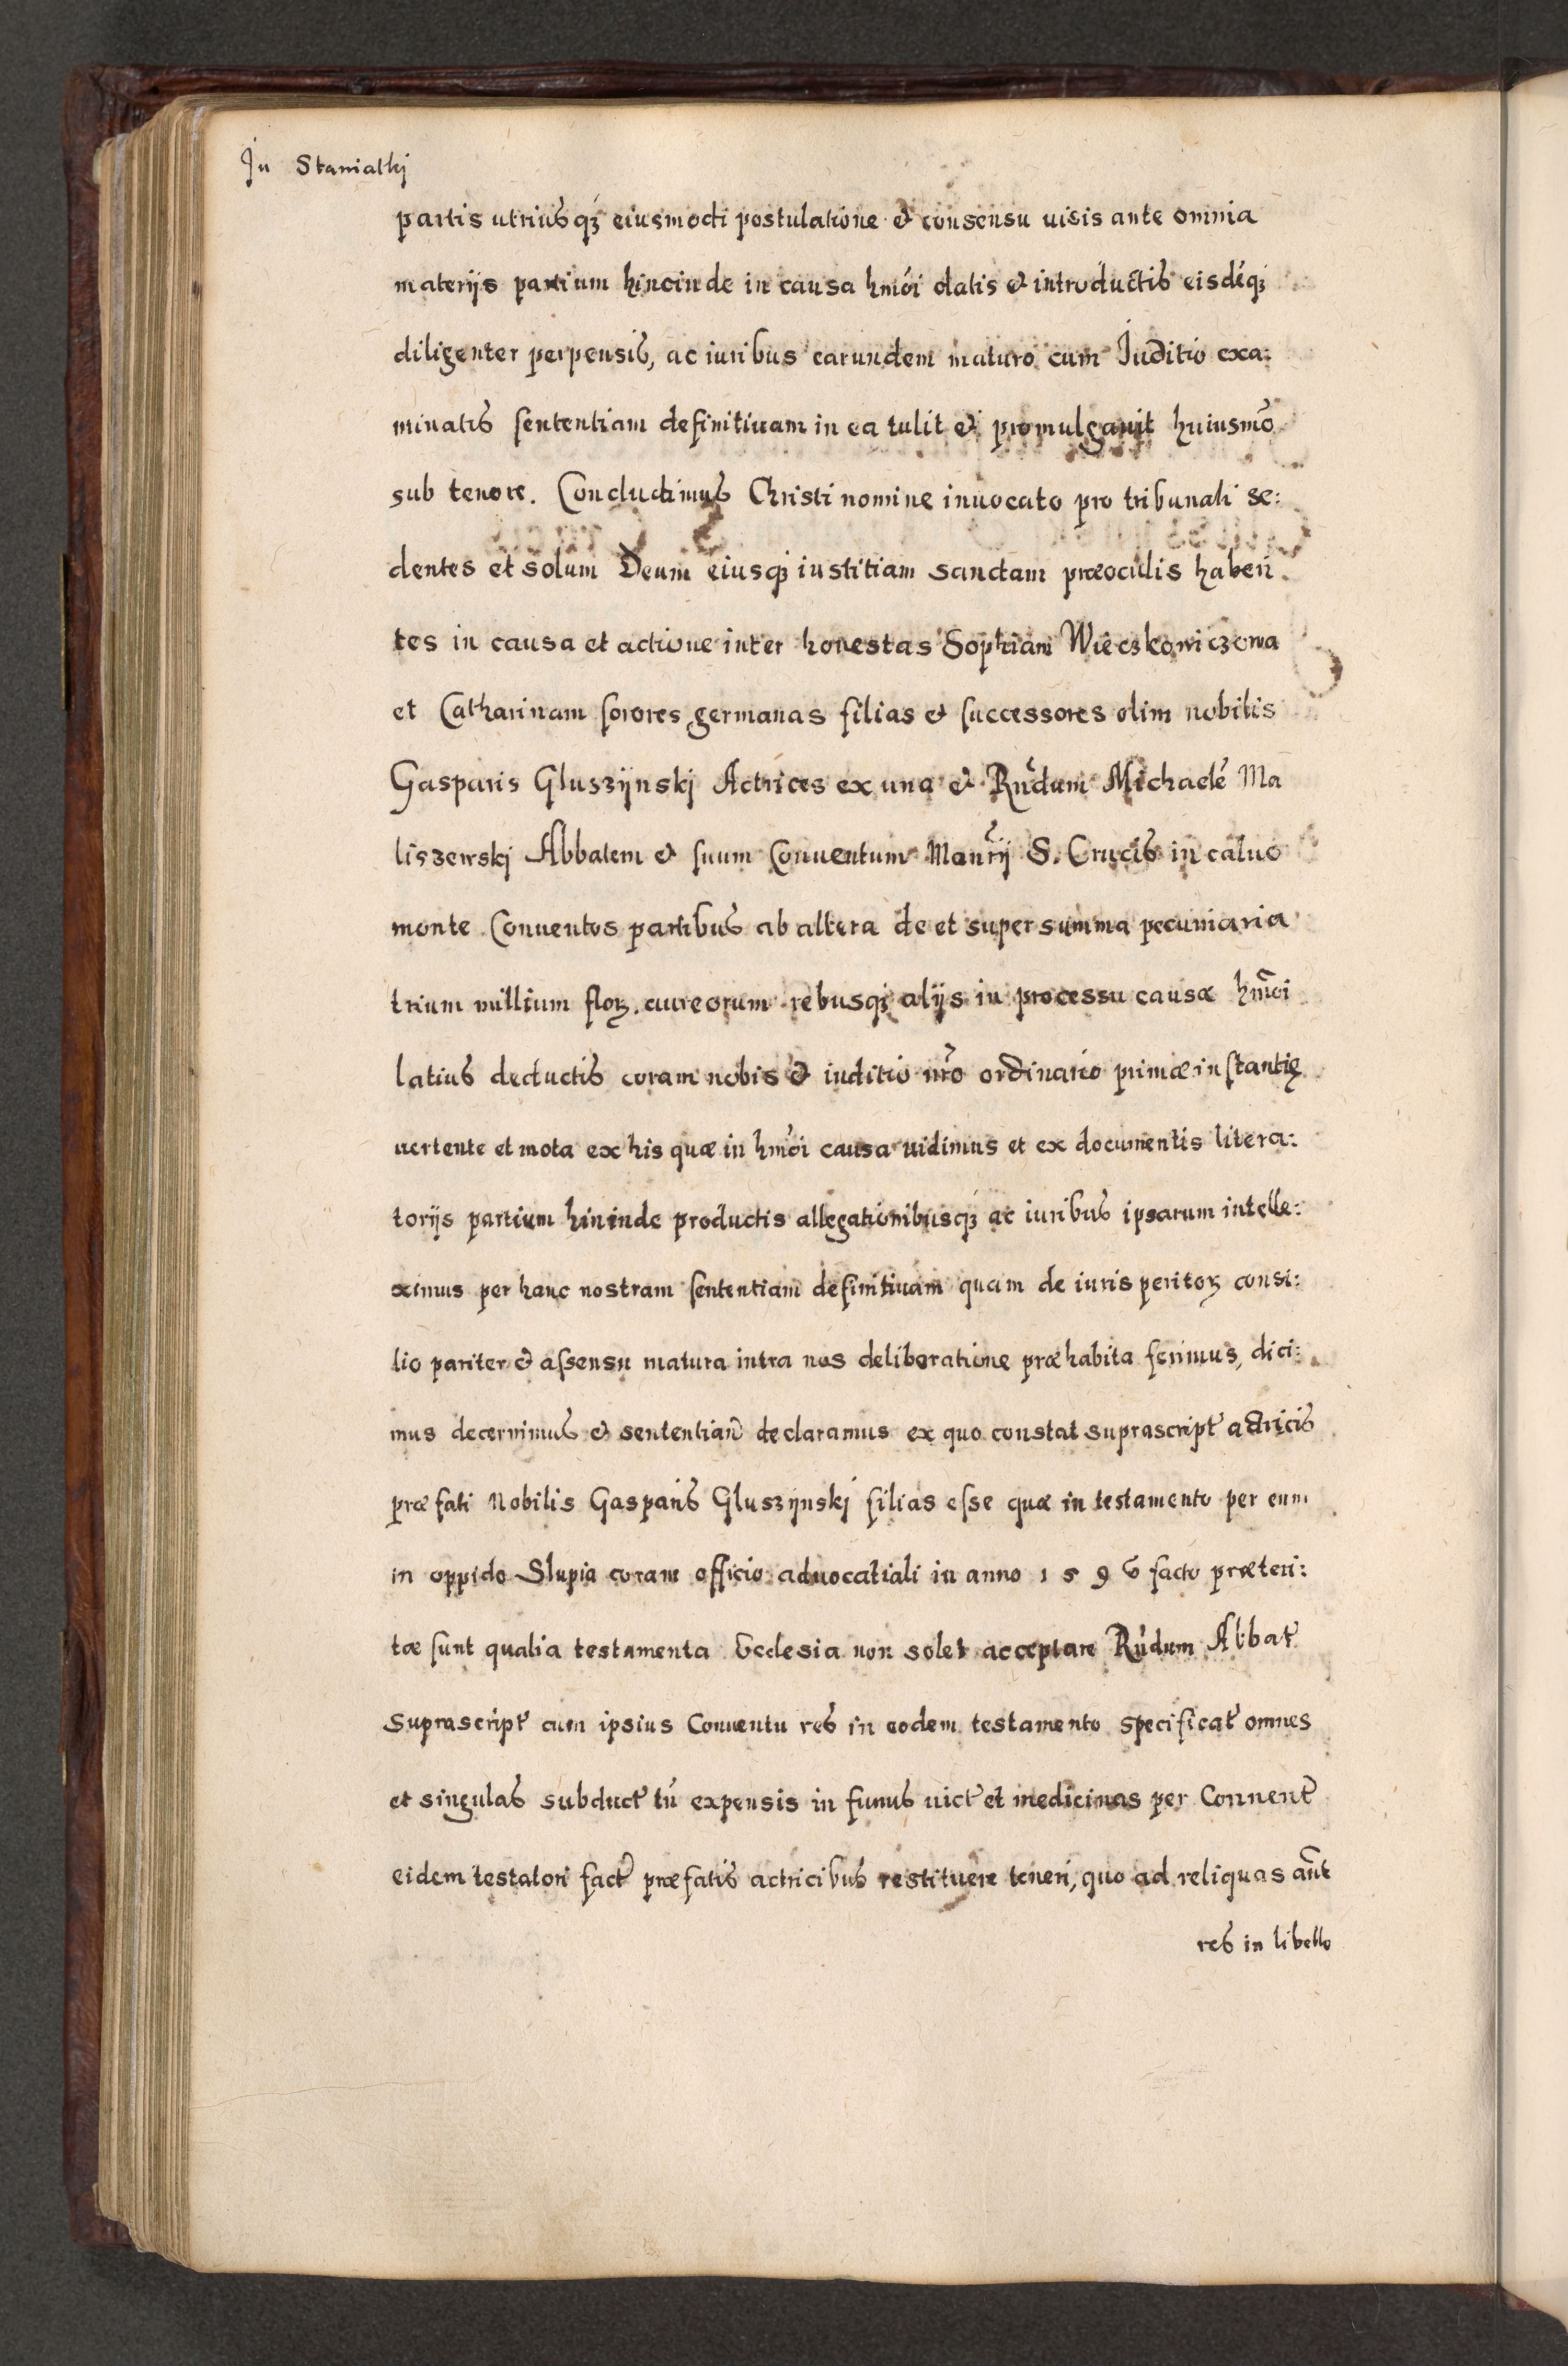 In Staniatkj
partis utriusqȝ eiusmodi postulatione & consensu uisis ante omnia
materijs partium hincinde in causa hmoi datis & introductis eisdéqȝ
diligenter perpensis, ac iuribus earundem maturo cum Juditio exa:
minatis sententiam definitiuam in ea tulit & promulgauit huiusmo
sub tenore. Concludimus Christi nomine inuocato pro tribunali se:
dentes et solum Deum eiusqȝ iustitiam sanctam præoculis haben
tes in causa et actione inter honestas Sophiam Wieczkowiczowa
et Catharinam sorores germanas filias & successores olim nobilis
Gasparis Gluszÿnskj Actrices ex una & Rndum Michaelé Ma
liszewskj Abbatem & suum Conuentum Manrij S. Crucis in caluo
monte Conuentos partibus ab altera de et super summa pecuniaria
trium millium florꝝ. aureorum rebusqȝ alijs in processu causæ hmoi
latius deductis coram nobis & iuditio nro ordinario primæ instantię
uertente et mota ex his quæ in hmoi causa uidimus et ex documentis litera:
torijs partium hininde productis allegationibusqȝ ac iuribus ipsarum intelle:
ximus per hanc nostram sententiam definitiuam quam de iuris peritoꝝ consi:
lio pariter & assensu matura intra nos deliberatione præhabita ferimus, dici:
mus decernimus & sententian̄ declaramus ex quo constat suprascript actricis
præfati Nobilis Gasparis Gluszÿnskj filias esse quæ in testamento per eum
in oppido Slupia coram officio aduocatiali in anno 1 5 9 6 facto præteri:
tæ sunt qualia testamenta Ecclesia non solet acceptare Rndum Abbat
suprascript cum ipsius Conuentu res in eodem testamento specificat omnes
et singulas subduct tn̄ expensis in funus uict et medicinas per Conuent
eidem testatori fact præfatis actricibus restituere teneri, quo ad reliquas aūt
res in libello